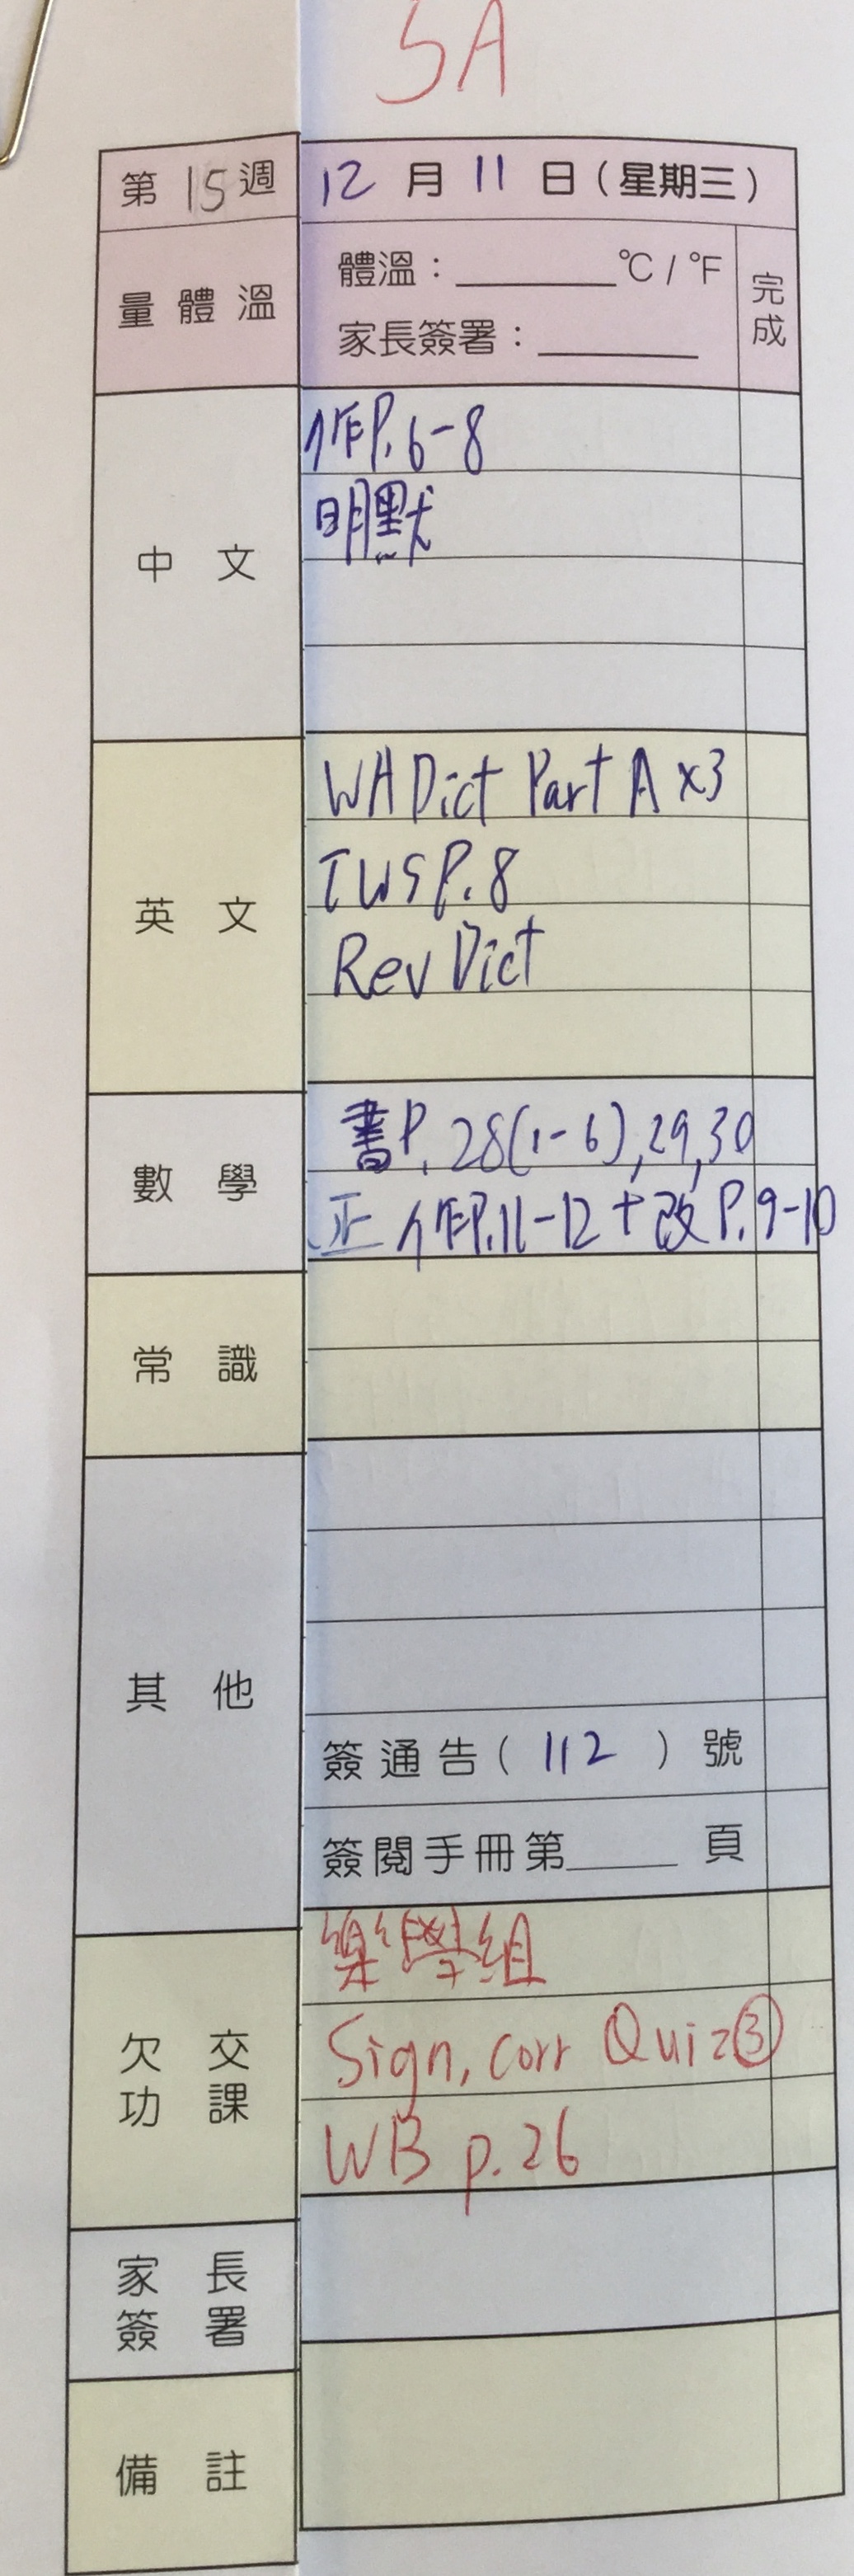 5A
第15週 12月11日(星期三)
量體溫 體溫：______℃/℉ 完成
家長簽署：______
中文 作P.6-8
明默
英文 WA Dict Part A x3
TWS P.8
Rev Dict
數學 書P.28(1-6),29,30
正 作P.11-12+改P.9-10
常識
其他
簽通告(112)號
簽閱手冊第____頁
欠交功課 樂學組
Sign, corr Quiz③
WB p.26
家長簽署
備註